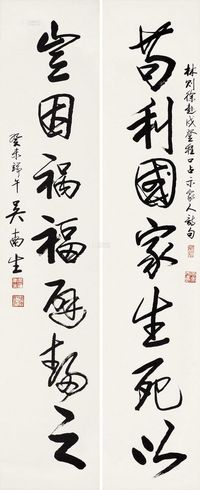 林则徐赴戍登程口占示家人诗句
苟利國家生死以
豈因禍福避趨之
癸未端午
吴南生